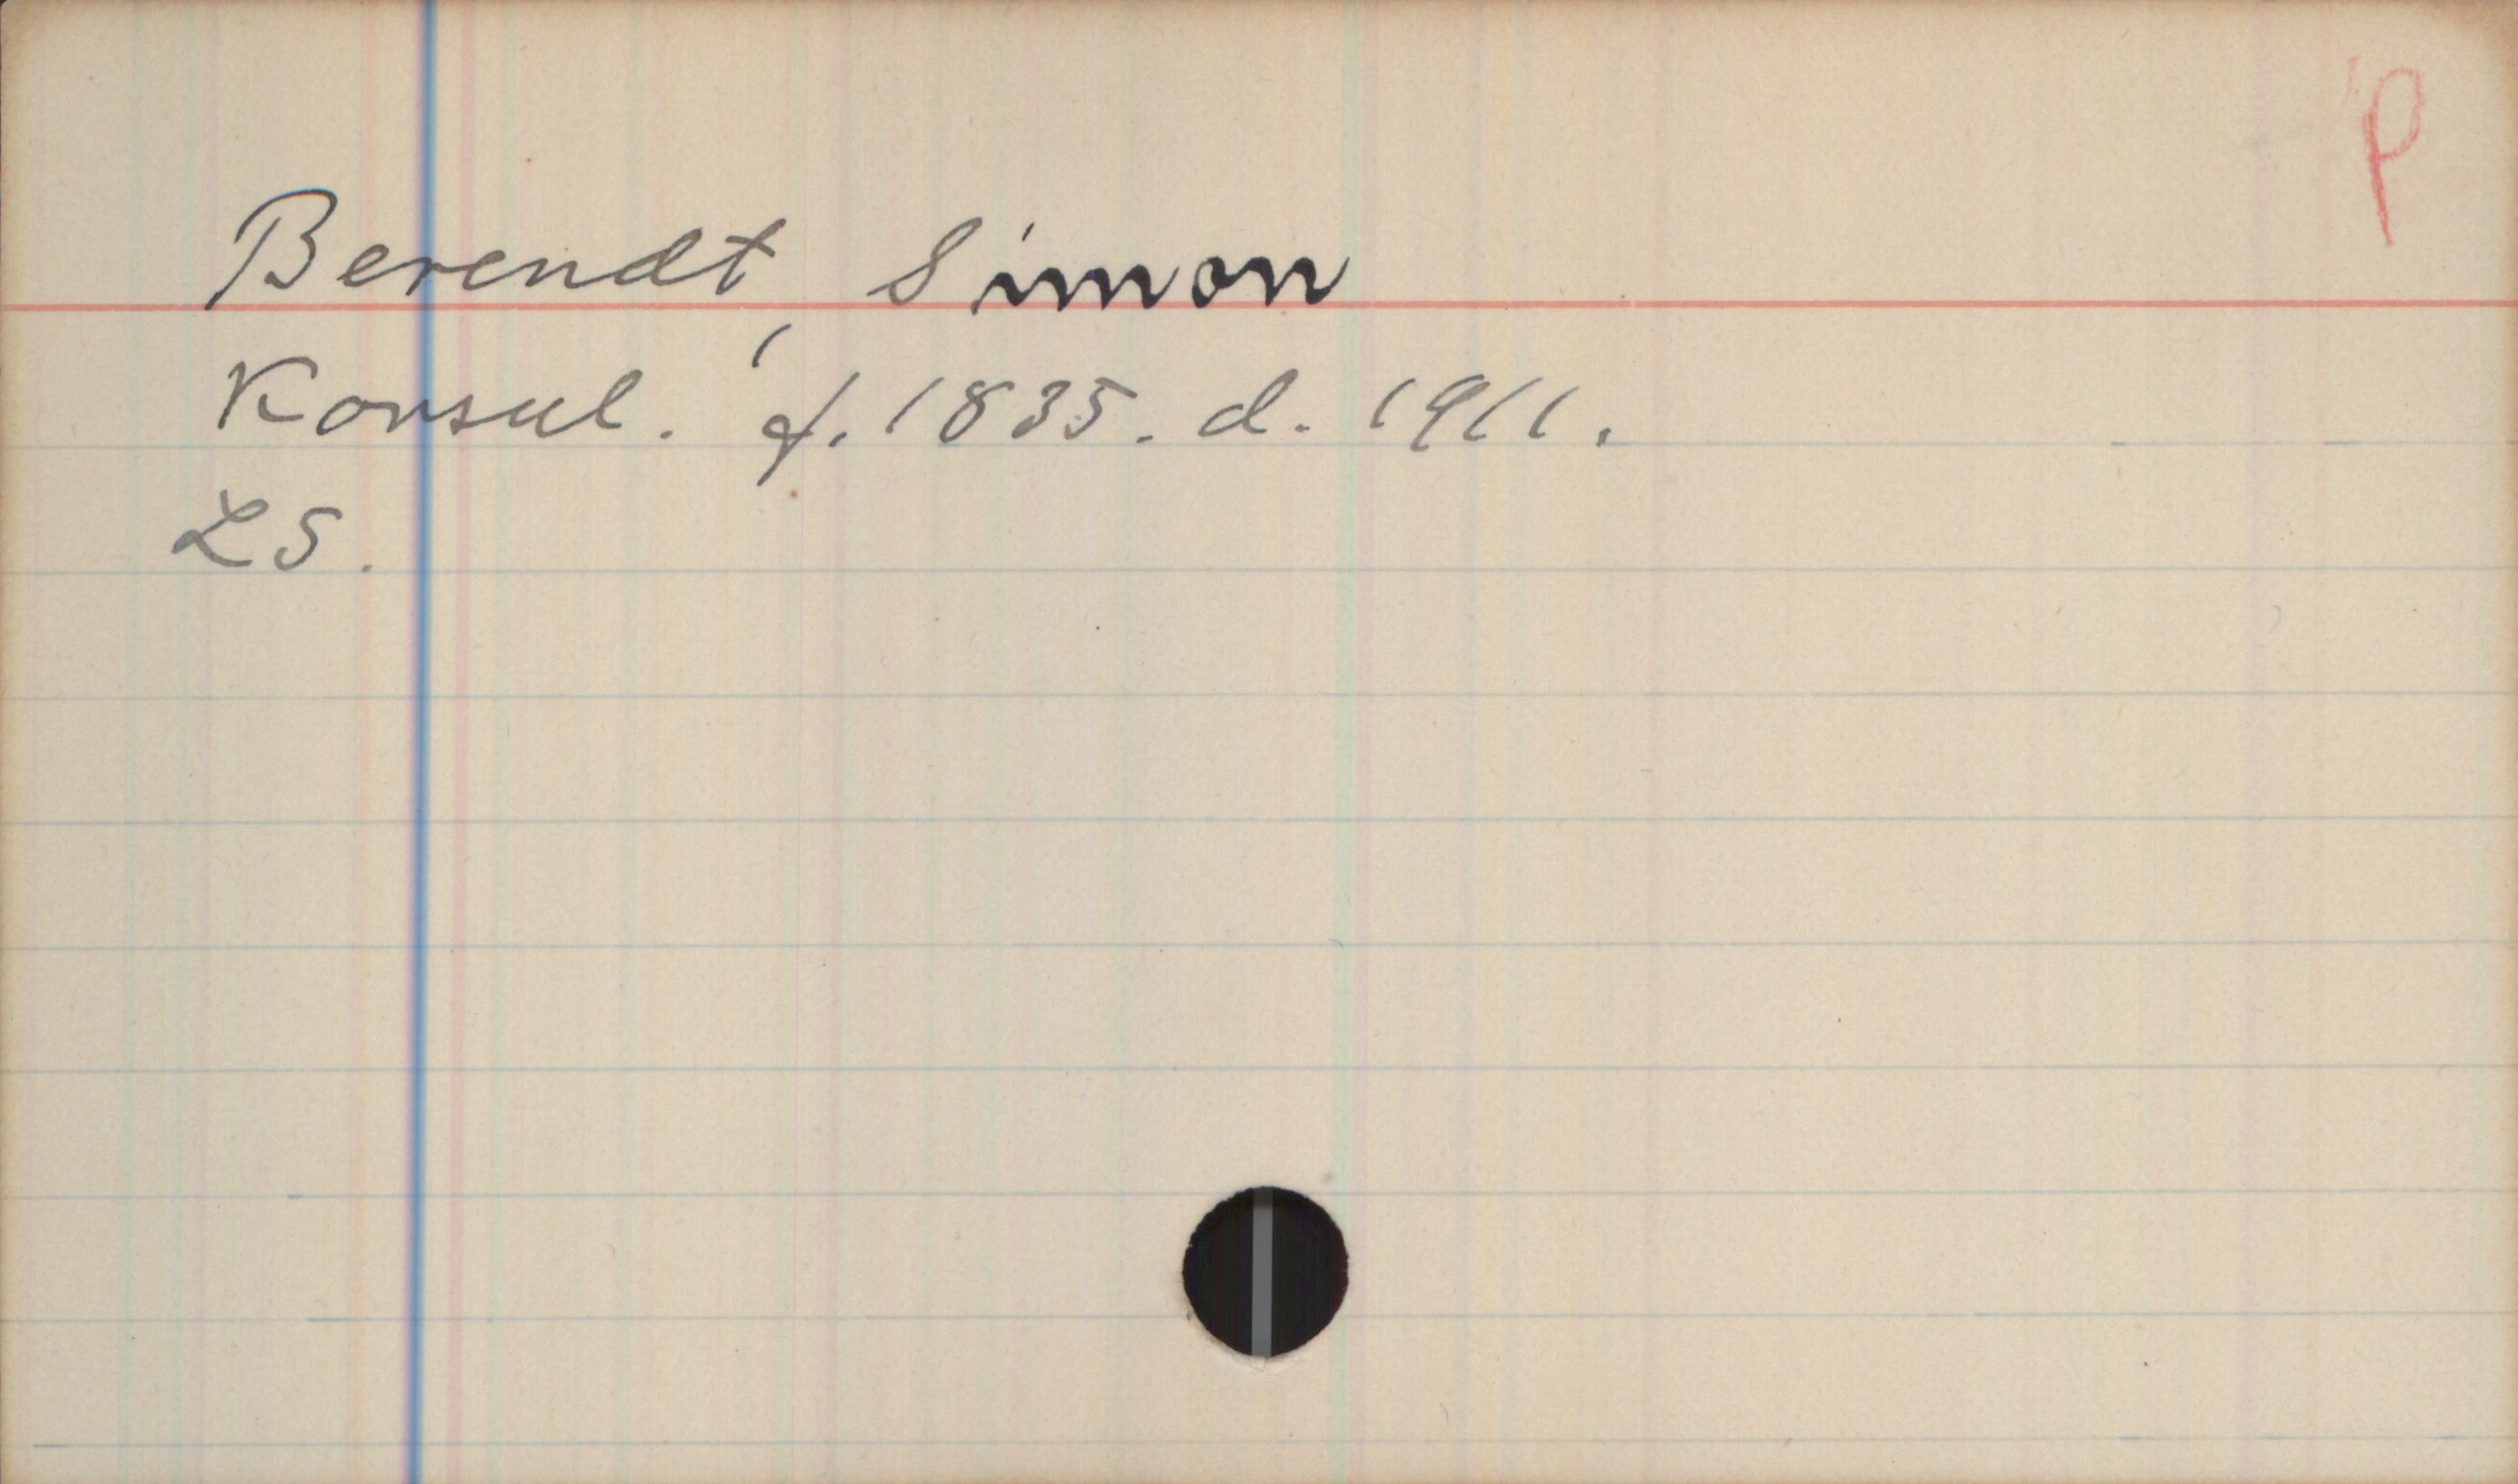 P
Berendt, Simon
Konsul. f. 1835. d. 1911.
LS.